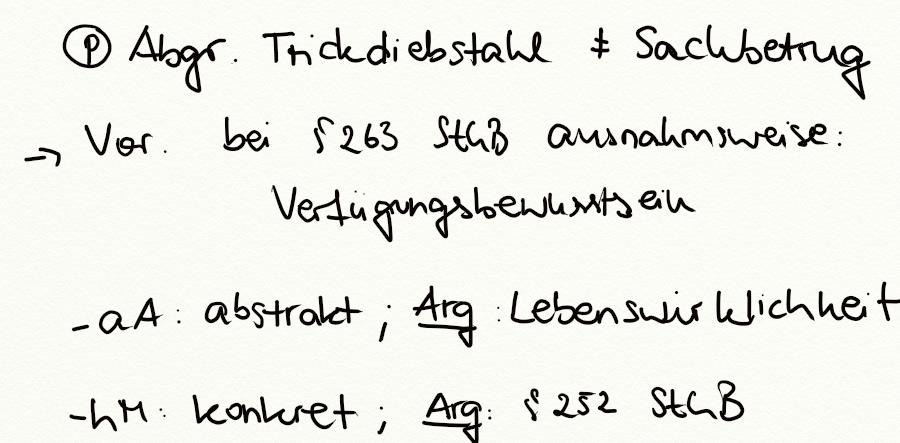 Ⓟ Abgr. Trickdiebstahl ≠ Sachbetrug
→ Vor. bei § 263 StGB ausnahmsweise:
Verfügungsbewusstsein
- aA: abstrakt; Arg: Lebenswirklichkeit
- hM: konkret; Arg: § 252 StGB